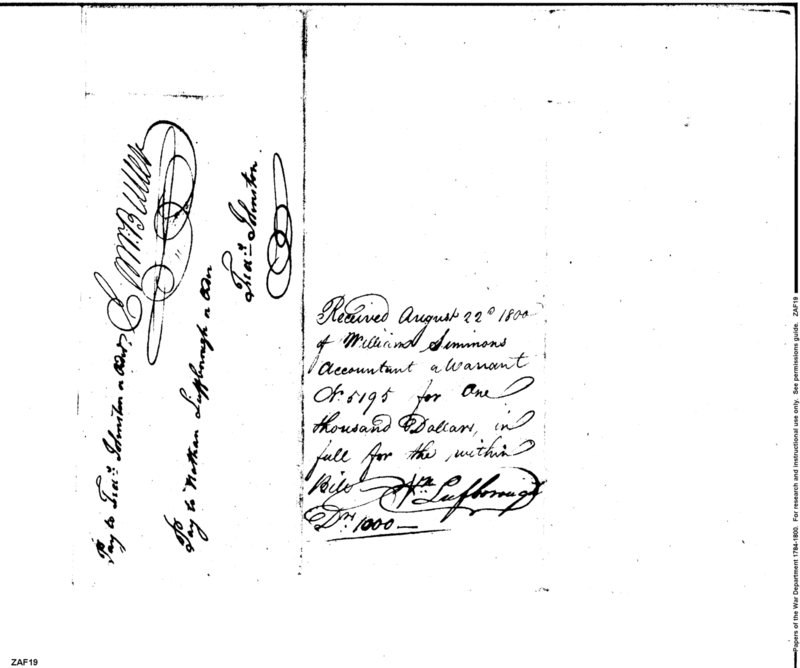 Pay to Fred.k Johnston or Order
Wm. B Miller
Pay to Nathan Luffborough or Order
Fred.k Johnston.
Received August 22d 1800
of William Simmons
Accountant a Warrant
No. 5195 for One
thousand Dollars, in
full for the within
Bill
Nn. Luffborough
Drs. 1000 —
ZAF19
Papers of the War Department 1784-1800. For research and instructional use only. See permissions guide. ZAF19